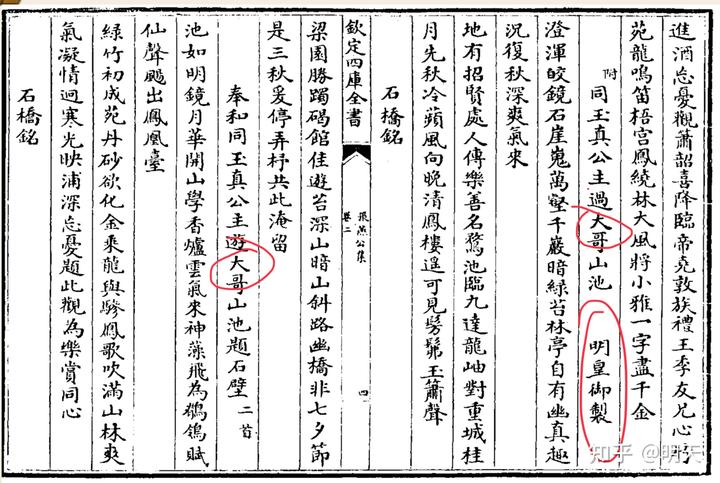 進酒忘憂觀簫韶喜降臨帝堯敦族禮王季友兄心竹
苑龍鳴笛梧宮鳳繞林大風將小雅一字盡千金
附 同玉真公主過大哥山池 明皇御製
澄渾皎鏡石崖嵬萬壑千巖暗綠苔林亭自有幽真趣
況復秋深爽氣來
地有招賢處人傳樂善名鶩池臨九達龍岫對重城桂
月先秋冷蘋風向晚清鳳樓遥可見髣髴玉簫聲
石橋銘
欽定四庫全書
張燕公集
卷二
四
梁園勝躅碣館佳遊苔深山暗山斜路幽橋非七夕節
是三秋爰停弄杼共此淹留
奉和同玉真公主遊大哥山池題石壁二首
池如明鏡月華開山學香爐雲氣來神藻飛為鶺鴒賦
仙聲颺出鳳凰臺
綠竹初成苑丹砂欲化金乘龍與驂鳳歌吹滿山林爽
氣凝情迥寒光映浦深忘憂題此觀為樂賞同心
石橋銘
知乎 @明矢